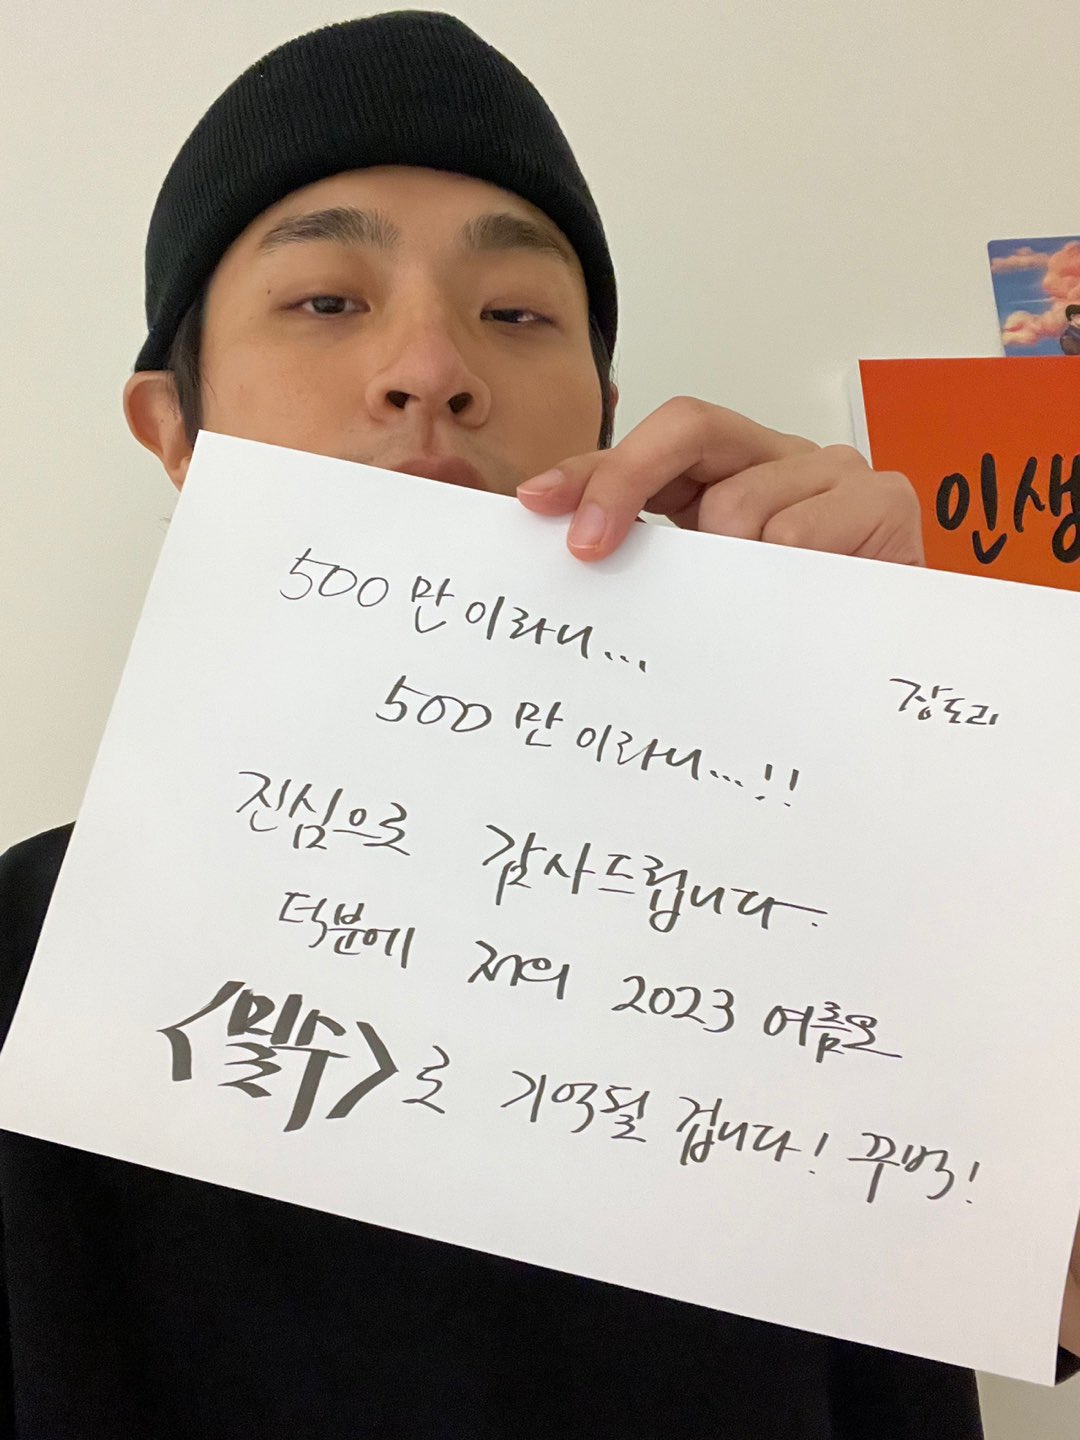 인생
500만이라니...
장도리
500만이라니...!!
진심으로 감사드립니다.
덕분에 저의 2023 여름은
<밀수>로 기억될 겁니다! 꾸벅!